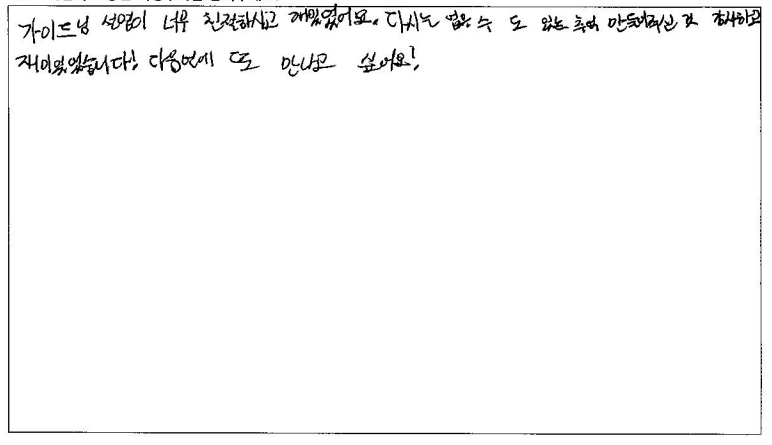 가이드님 설명이 너무 친절하시고 재밌었어요. 다시는 없을 수 도 있는 추억 만들어주신 것 감사하고
재미있었습니다! 다음번에 또 만나고 싶어요!